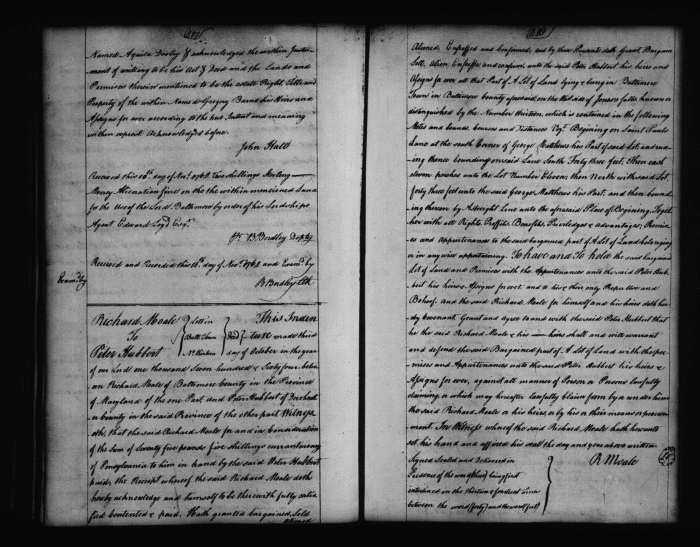 687
Named Aquila Dooley & acknowledged the within Instru-
ment of writing to be his Act & Deed and the Lands and
Premises therein mentioned to be the estate Right, Title and
Property of the within Named Gregory Barnes his Heirs and
Assigns for ever according to the true Intent and meaning
within exprest Acknowledged before
John Hall
Received this 10th day of Novr. 1764 Two shillings Sterling
Money Alienation fine on the the within mentioned Land
for the Use of the Lord Baltimore by order of his Lordships
Agent Edward Loyd Esqr.
B. Bordley Depty
Received and Recorded this 10th day of Novr. 1764 and Examd. by
B. Bordley Clk
Examd. by
Richard Moale
To
Peter Hubbert
Lott in
Balt. Town
No. thirteen
Deed
This Inden
ture made third
day of October in the year
of our Lord one thousand Seven hundred & Sixty four betw-
een Richard Moale of Baltimore County in the Province
of Maryland of the one Part and Peter Hubbert of Dorchest-
er County in the said Province of the other part Witness-
eth, that the said Richard Moale for and in Consideration
of the Sum of Seventy five pounds five Shillings current money
of Pensylvania to him in hand by the said Peter Hubbert
paid, the Receipt whereof the said Richard Moale doth
hereby acknowledge and himself to be therewith fully satis-
fied contented & paid, Hath granted bargained, Sold
aliened
688
Aliened, Enfeoffed and Confirmed, and by these Presents doth Grant, Bargain
Sell, Alien Enfeoffe and confirm, unto the said Peter Hubbert his heirs and
Assigns for ever all that Part of A Lot of Land lying & being in Baltimore
Town in Baltimore County aforesaid on the West side of Jones's falls known &
distinguished by the Number thirteen, which is contained in the following
Metes and bounds, Courses and Distances Vizt. Begining on Saint Pauls
Lane at the South Corner of George Matthews his Part of said Lot, and run-
ing thence bounding on said Lane South Forty three feet, Then East
eleven perches unto the Lot Number Eleven, then North with said Lot
forty three feet unto the said George Matthews his Part, and then bound-
ing thereon by A straight Line unto the aforesaid Place of Begining, Toget-
her with all Rights, Proffits Benefits, Priviledges & advantages, Premis-
es and appurtenances to the said bargained part of A Lot of Land belonging
or in any wise appertaining. To have and To hold the said bargained
Lot of Land and Premises with the Appurtenances unto the said Peter Hub-
bert his heirs & Assigns for ever, and to his & their only Proper Use and
Behoof. And the said Richard Moale for himself and his heirs doth her-
by Covenant Grant and agree to and with the said Peter Hubbert that
he the said Richard Moale & his heirs shall and will warrant
and defend the said Bargained part of A Lot of Land with the pre-
mises and Appurtenances unto the said Peter Hubbert his heirs &
Assigns for ever, against all manner of Person or Persons lawfully
claiming, or which may hereafter lawfully claim from by or under him
the said Richard Moale or his heirs, or by his or their means or procure-
ment. In Witness whereof the said Richard Moale hath hereunto
set his hand and affixed his seal the day and year above written
Signed Sealed and Delivered in
Presence of the word (thence) being first
interlined in the thirteen & fourteenth Line
between the word (forty) and the word (feet)
R Moale